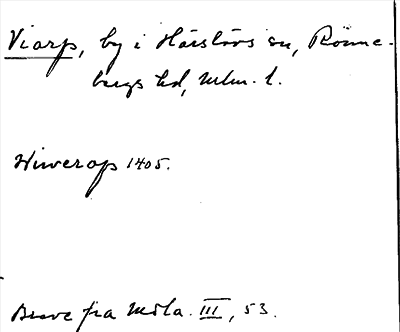 Viarp, by i Härslövs sn, Rönne-
bergs hd, Mlm. l.
Wiwerop 1405.
Breve fra Mdla. III, 53.